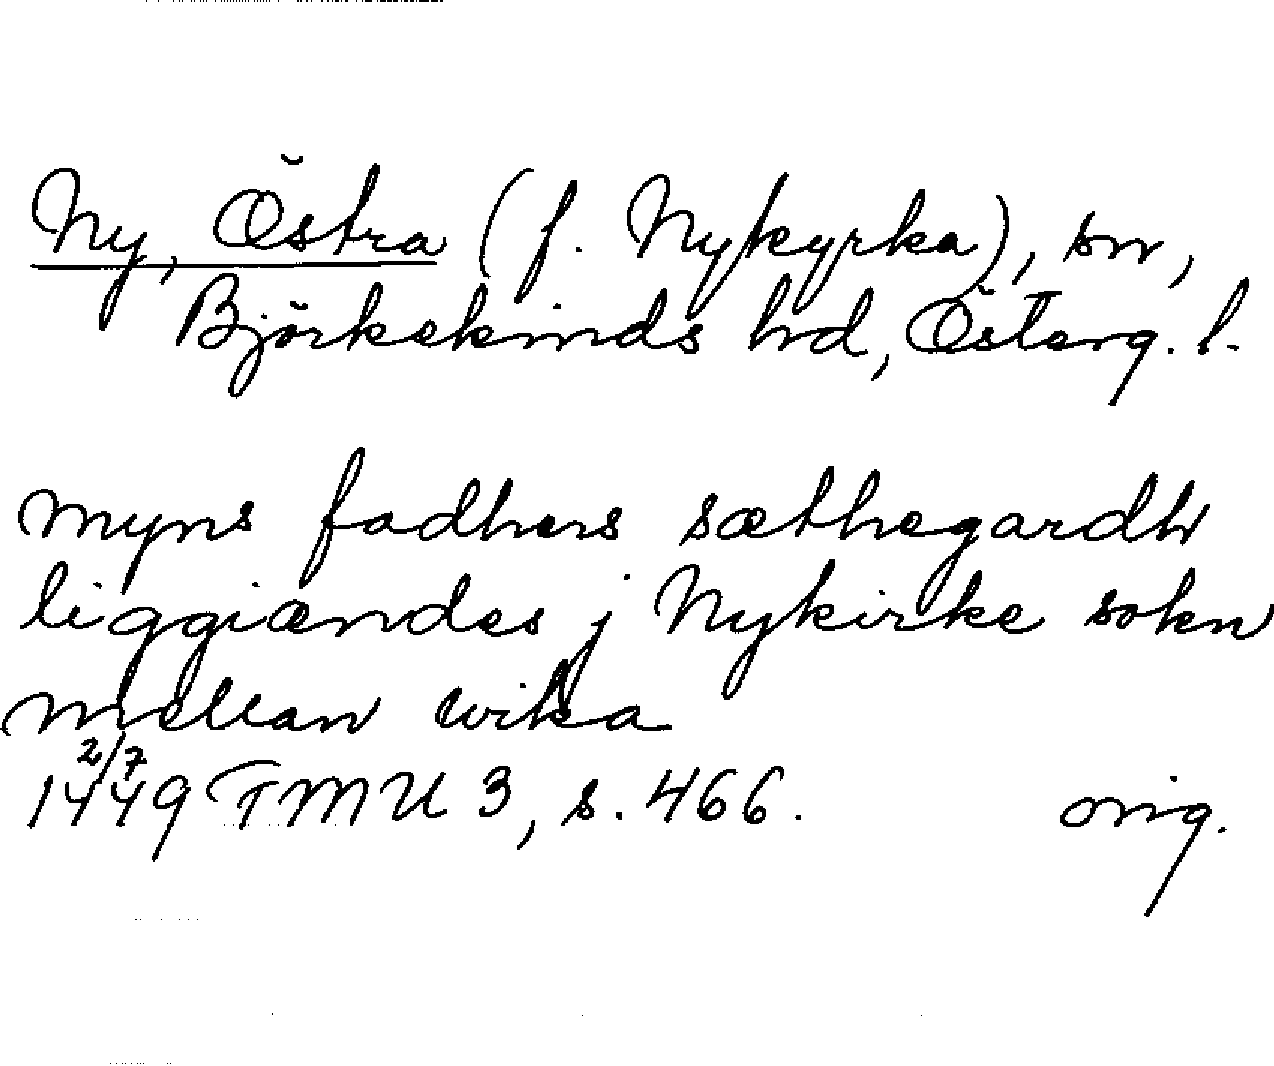 Ny, Östra (f. Nykyrka), sn,
Björkekinds hd, Österg. l.
myns fadhers sæthegardh
liggiændes j Nykirke sokn
mellan wika
2/7
1449 FMU 3, s. 466. orig.